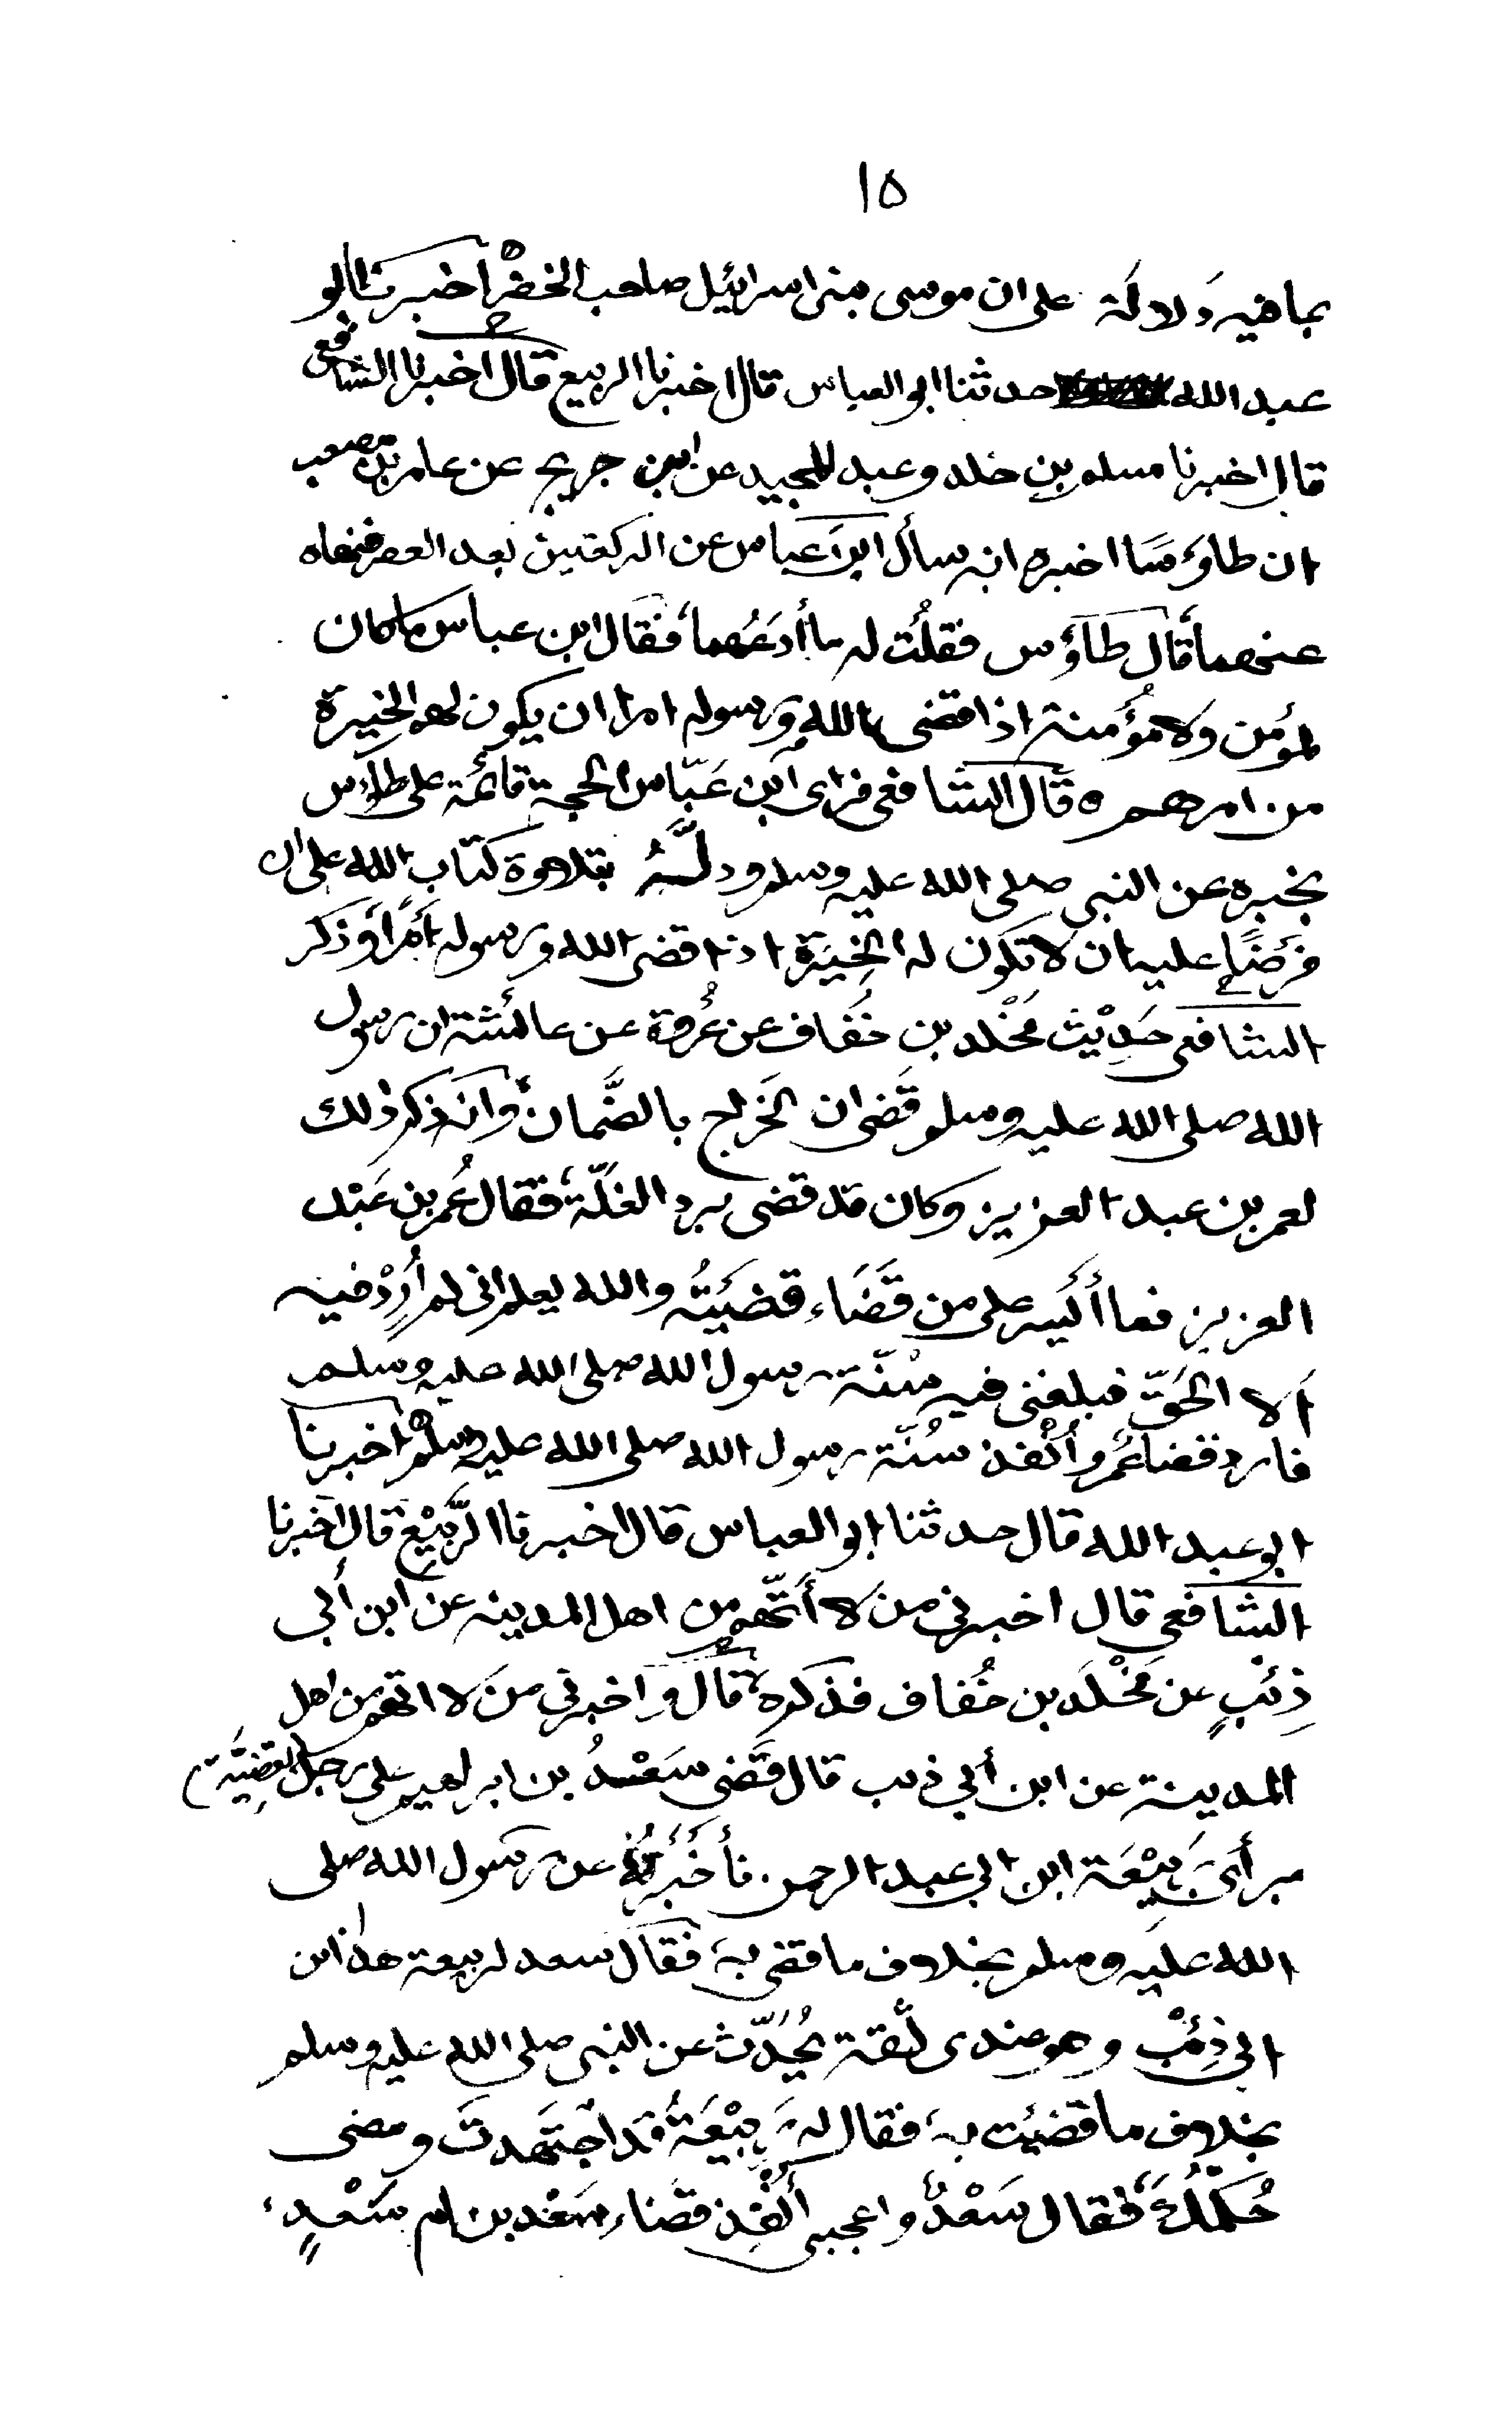 ١٥
بما فيه دَلالة على ان موسى بنى اسرائيل صاحب الخضر اخبرنا ابو
عبد الله حدثنا ابو العباس قال اخبرنا الربيع قال اخبرنا الشافعى
قال اخبرنا مسلم بن خلد وعبد المجيد عن ابن جريج عن عامر بن مصعب
ان طاوُسًا اخبره انه سأل ابن عباس عن الركعتين بعد العصر فنهاه
عنهما قال طاؤس فقلتُ له ما أدَعُهما فقال ابن عباس ما كان
لمؤمن ولا مؤمنة اذا قضى الله ورسوله امرا ان يكون لهم الخيرة
من امرهم ٥ قال الشافعى فراى ابن عَبّاس الحجة قائمة على طاؤس
بخبره عن النبى صلى الله عليه وسلم ودلَّهُ بتلاوة كتاب الله على ان
فَرْضًا عليه ان لا تكون له الخِيَرَة اذا قضى الله ورسوله أمْرًا وذكر
الشافعى حَدِيْث مَخْلد بن خُفاف عن عُروة عن عائشة ان رسول
الله صلى الله عليه وسلم قَضى ان الخَراج بالضَّمان وانه ذكر ذلك
لعمر بن عبد العزيز وكان قد قضى برد الغلّة فقال عُمر بن عَبْد
العزيز فما أيسر على من قَضَاء قضَيتُه والله يعلم انى لم أُرِدْ فيه
الا الحَقّ فبلغنى فيه سُنّة رسول الله صلى الله عليه وسلم
فارد قضا عُمر وأُنْفذ سُنّة رسول الله صلى الله عليه وسلم اخبرنا
ابو عبد الله قال حدثنا ابو العباس قال اخبرنا الرَّبِيْع قال اخبرنا
الشافعى قال اخبرنى من لا أتّهم من اهل المدينه عن ابن أبى
ذِئبٍ عن مَخْلَد بن خُفاف فذكره قال واخبرنى من لا اتهم من اهل
المدينة عن ابن أبى ذيب قال قَضى سَعْدُ بن ابراهيم على رجل بقضِيَّة
برأى رَبِيْعَة ابن ابى عبد الرحمن فأخبَرتُهُ عن رسول الله صلى
الله عليه وسلم بخلاف ما قضى به فقال سعد لربيعة هذا ابن
ابى ذِئْب وهو عندى ثقة يُحَدّث عن النبى صلى الله عليه وسلم
بخلاف ما قضيت به فقال له رَبِيْعَةُ قد اجتَهدتَ ومضى
حُكمُكَ فقال سَعْدٌ واعجبى أُنْفِذ قضاء سَعْد بن ام سَعْدٍ